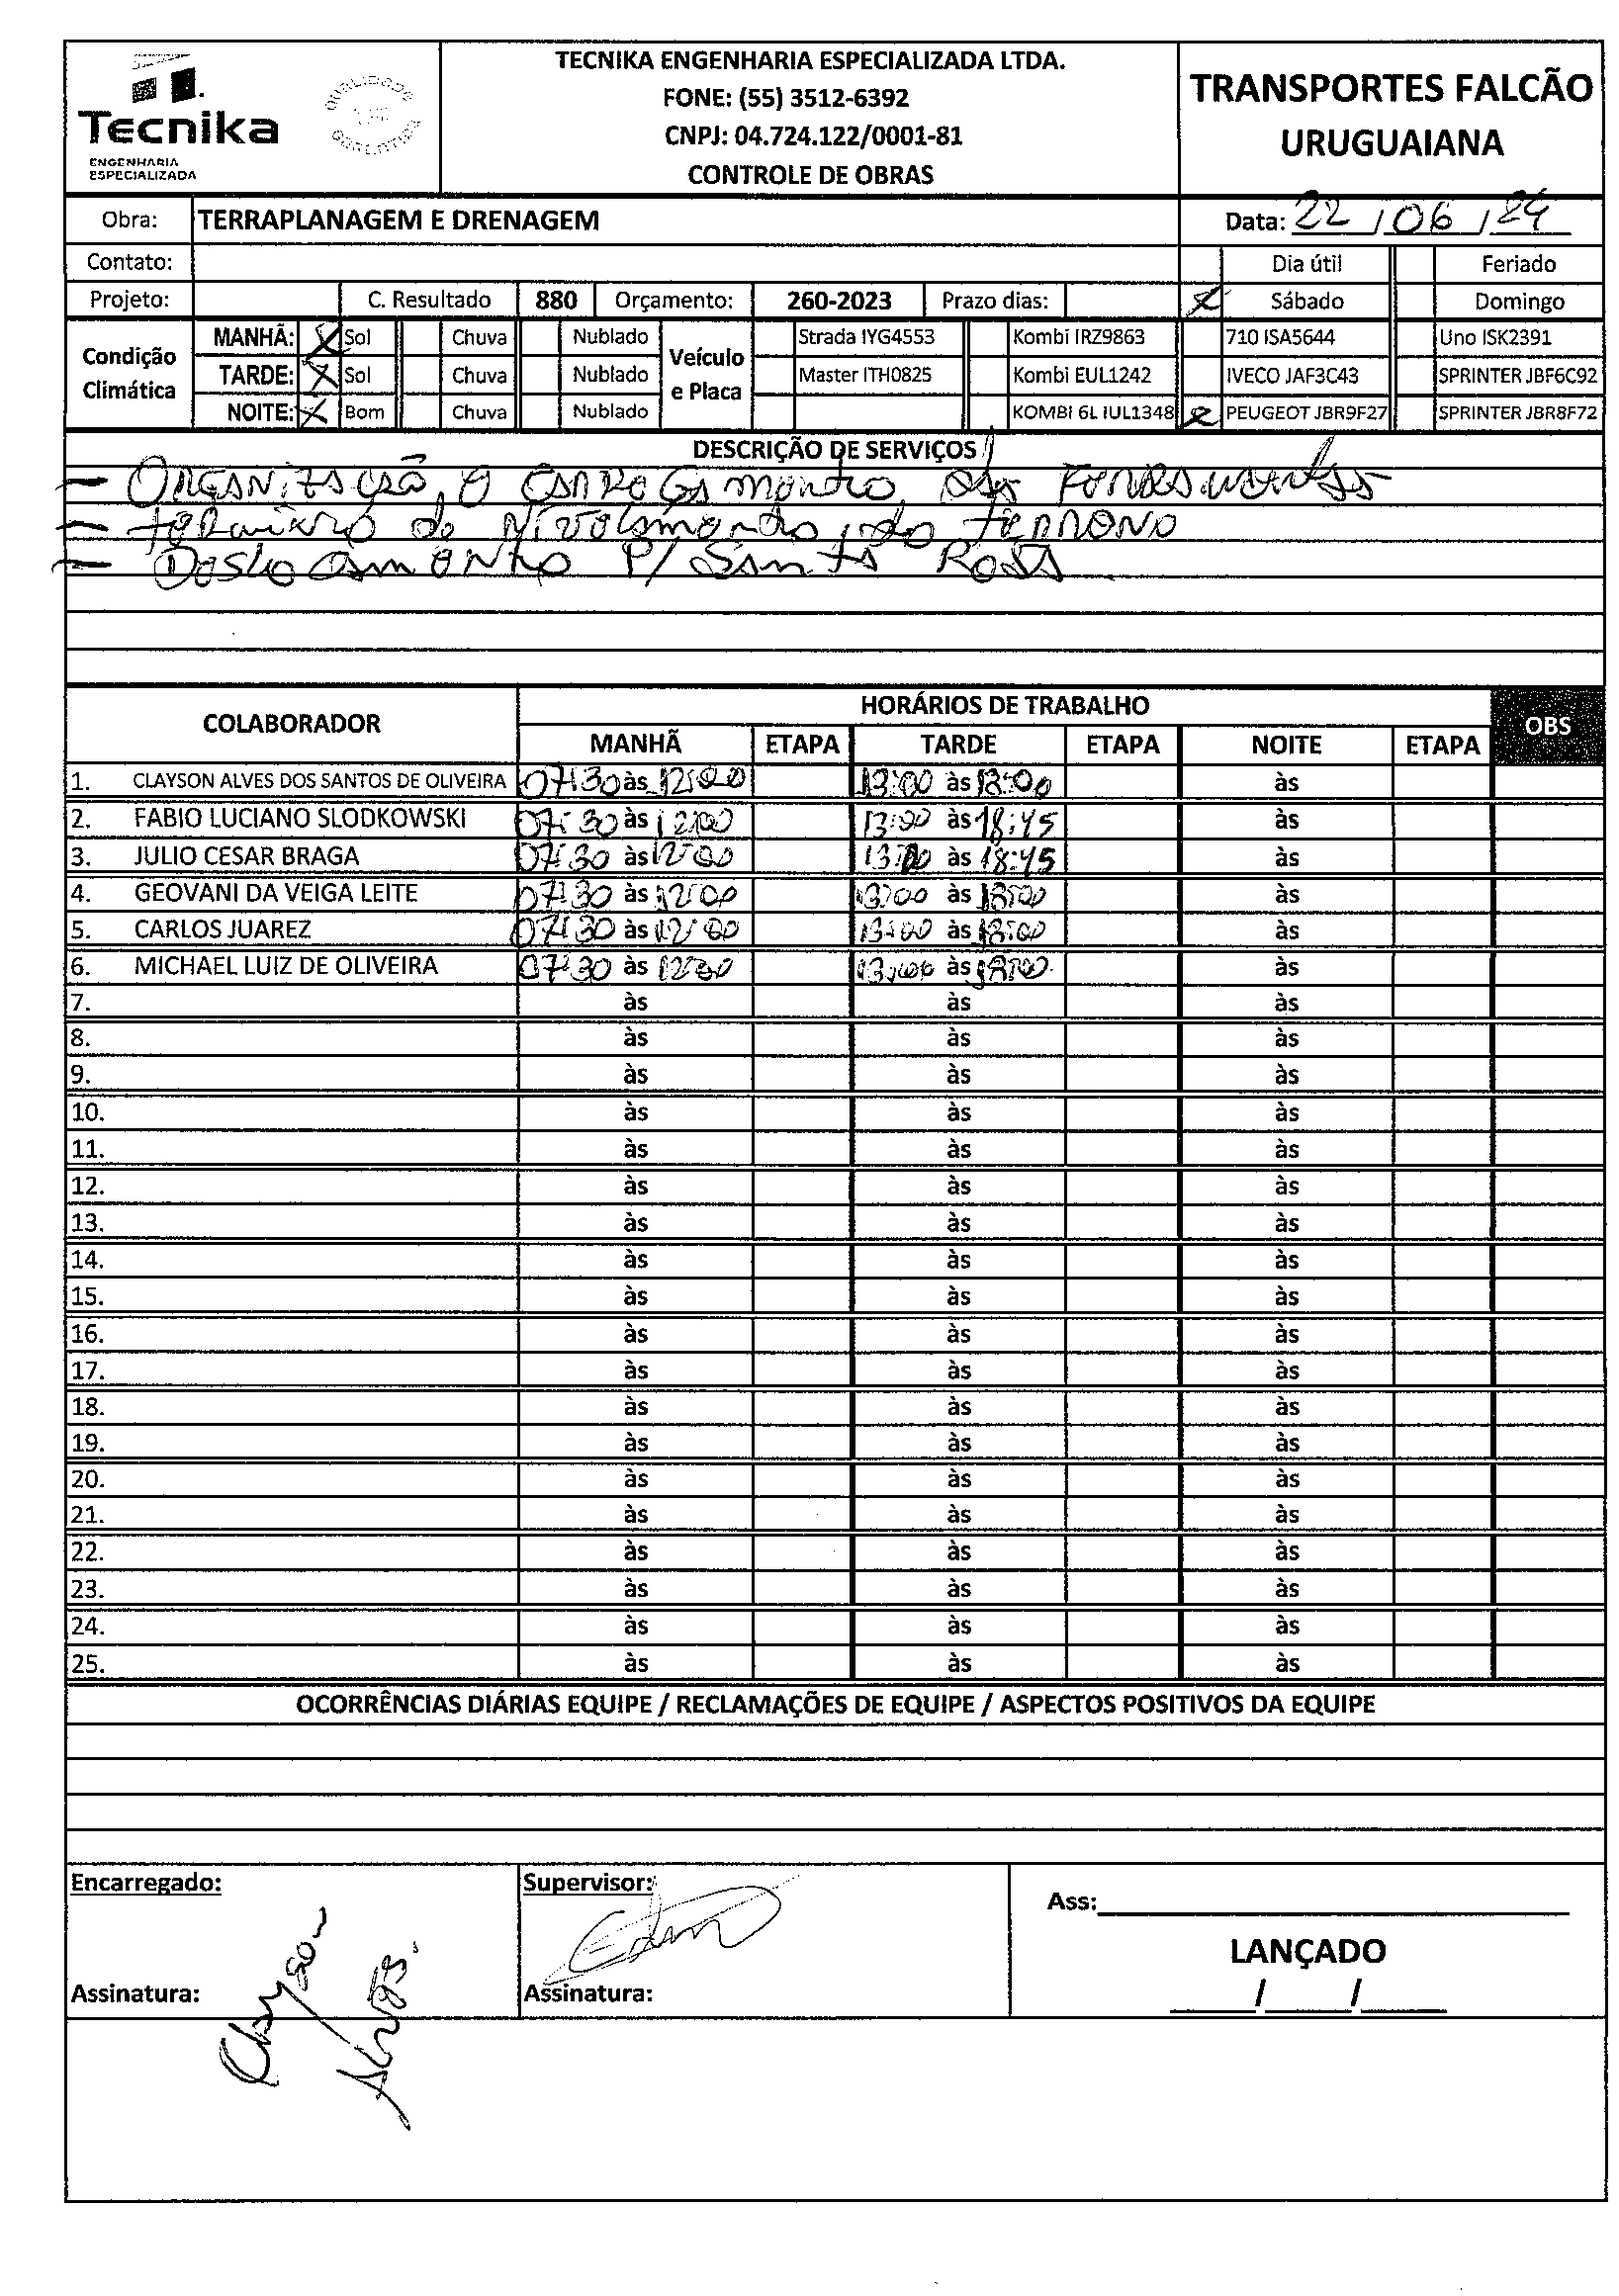 TECNIKA ENGENHARIA ESPECIALIZADA LTDA.
FONE: (55) 3512-6392
CNPJ: 04.724.122/0001-81
CONTROLE DE OBRAS
Tecnika
ENGENHARIA
ESPECIALIZADA
TRANSPORTES FALCÃO
URUGUAIANA
Obra: TERRAPLANAGEM E DRENAGEM Data: 22/06/24
Contato: Dia útil Feriado
Projeto: C. Resultado 880 Orçamento: 260-2023 Prazo dias: X Sábado Domingo
Condição Climática Veículo e Placa
MANHÃ: X Sol Chuva Nublado Strada IYG4553 Kombi IRZ9863 710 ISA5644 Uno ISK2391
TARDE: X Sol Chuva Nublado Master ITH0825 Kombi EUL1242 IVECO JAF3C43 SPRINTER JBF6C92
NOITE: X Bom Chuva Nublado KOMBI 6L IUL1348 X PEUGEOT JBR9F27 SPRINTER JBR8F72
DESCRIÇÃO DE SERVIÇOS
- Organização e carregamento das
- de Nivelamento do terreno
- Deslocamento P/ Santa Rosa
COLABORADOR HORÁRIOS DE TRABALHO OBS
MANHÃ ETAPA TARDE ETAPA NOITE ETAPA
1. CLAYSON ALVES DOS SANTOS DE OLIVEIRA 07:30 às 12:00 13:00 às 18:00 às
2. FABIO LUCIANO SLODKOWSKI 07:30 às 12:00 13:00 às 18:45 às
3. JULIO CESAR BRAGA 07:30 às 12:00 13:00 às 18:45 às
4. GEOVANI DA VEIGA LEITE 07:30 às 12:00 13:00 às 18:00 às
5. CARLOS JUAREZ 07:30 às 12:00 13:00 às 18:00 às
6. MICHAEL LUIZ DE OLIVEIRA 07:30 às 12:00 13:00 às 18:00 às
7. às às às
8. às às às
9. às às às
10. às às às
11. às às às
12. às às às
13. às às às
14. às às às
15. às às às
16. às às às
17. às às às
18. às às às
19. às às às
20. às às às
21. às às às
22. às às às
23. às às às
24. às às às
25. às às às
OCORRÊNCIAS DIÁRIAS EQUIPE / RECLAMAÇÕES DE EQUIPE / ASPECTOS POSITIVOS DA EQUIPE
Encarregado: Supervisor: Ass:
Clayson Alves
LANÇADO
Assinatura: Assinatura: / /